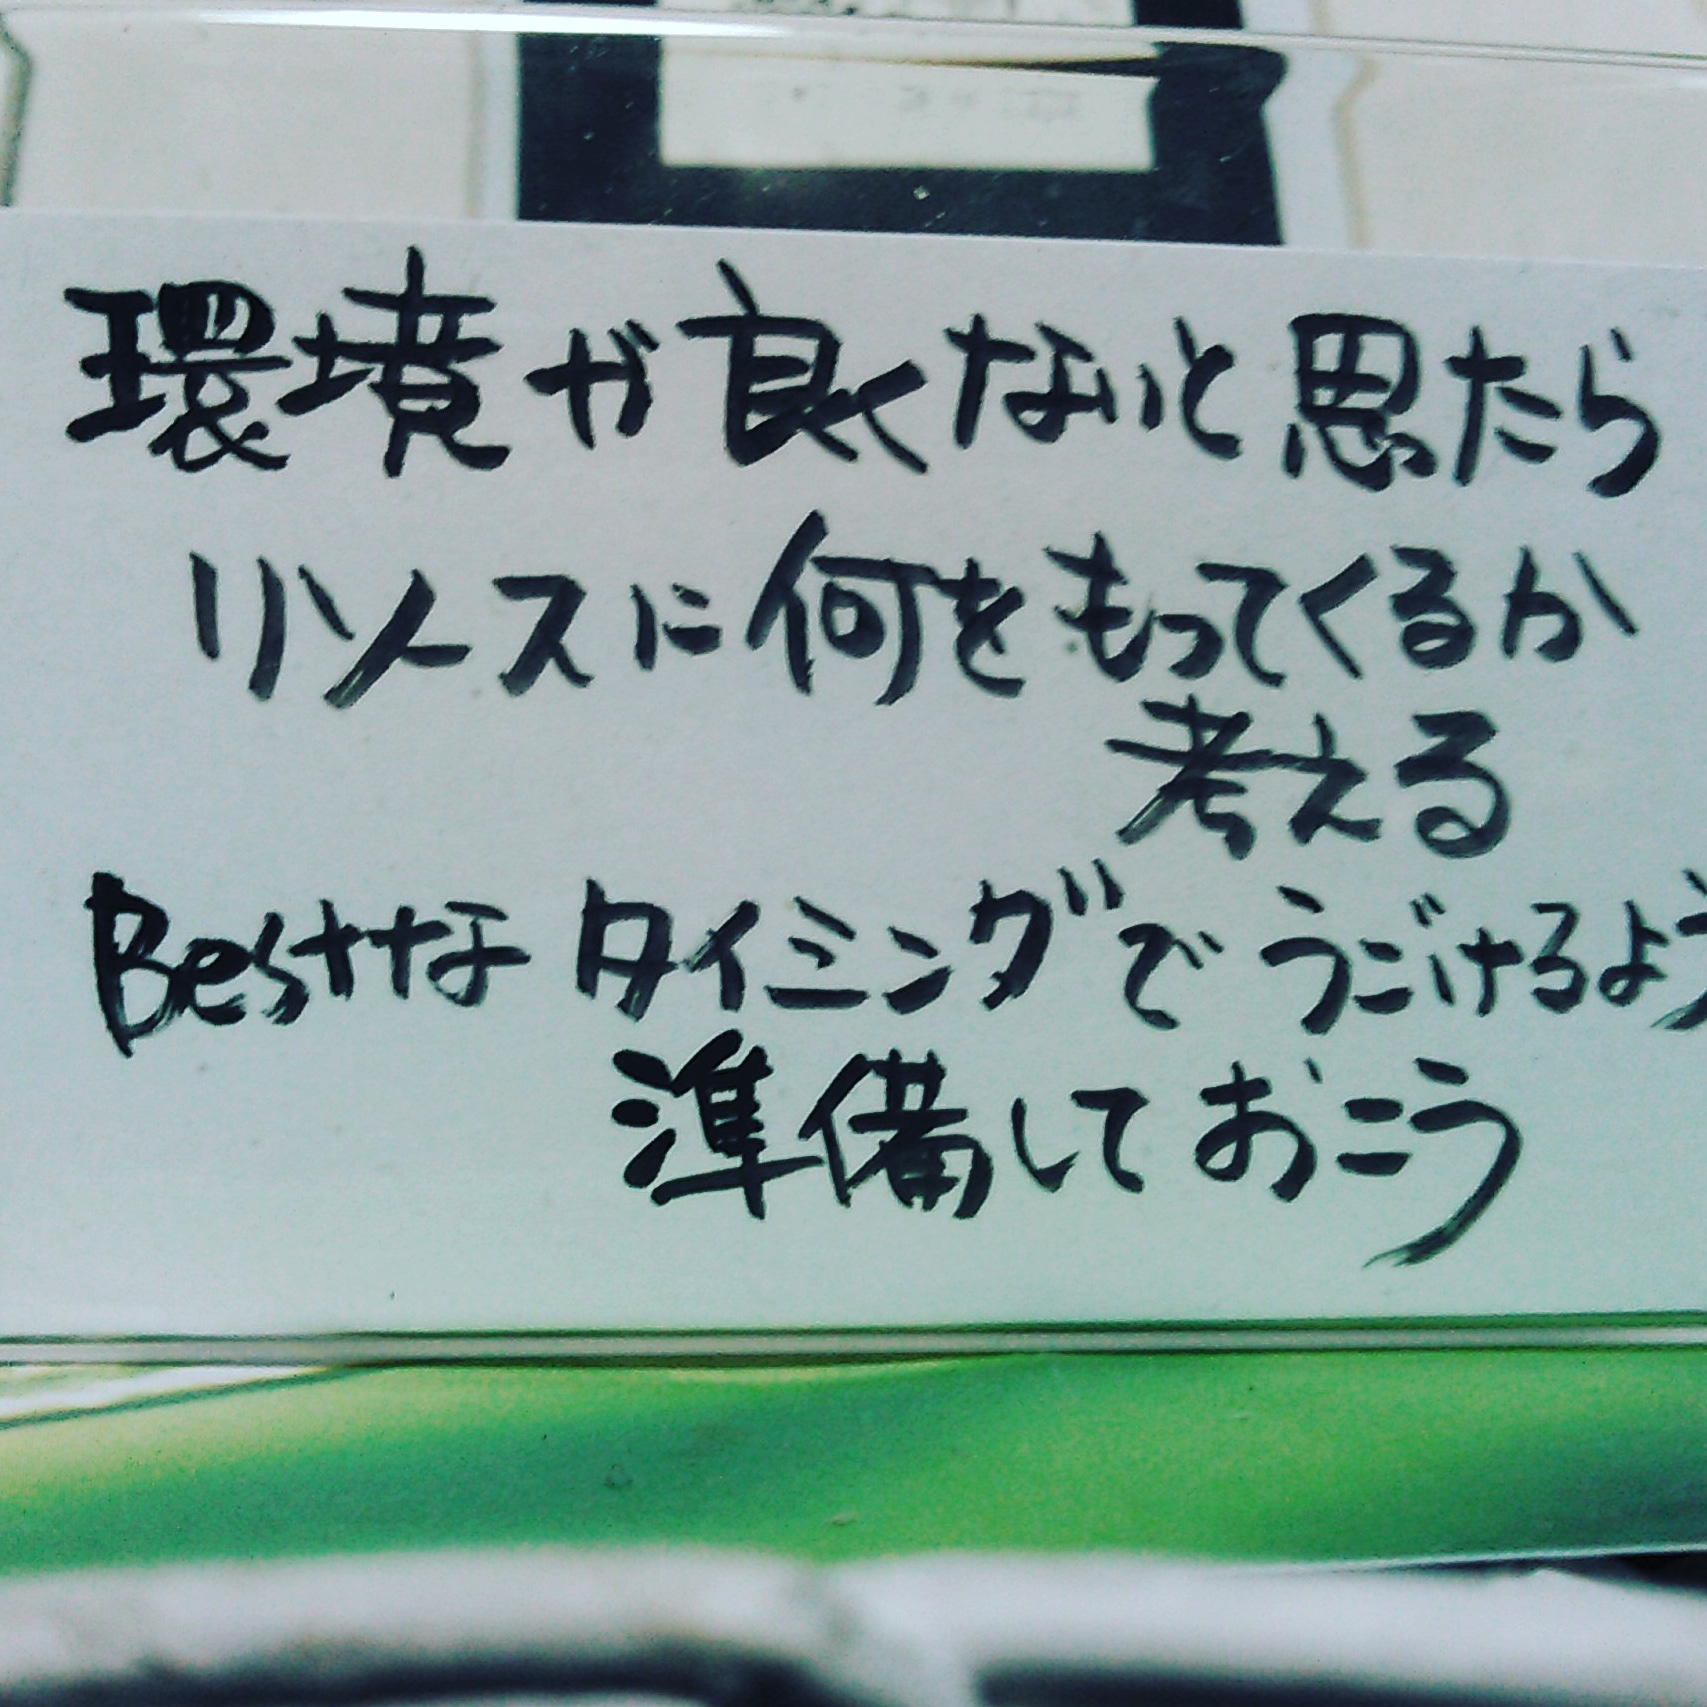 環境が良くないと思たら
リソースに何をもってくるか
考える
Bestな タイミングで うごけるよう
準備しておこう